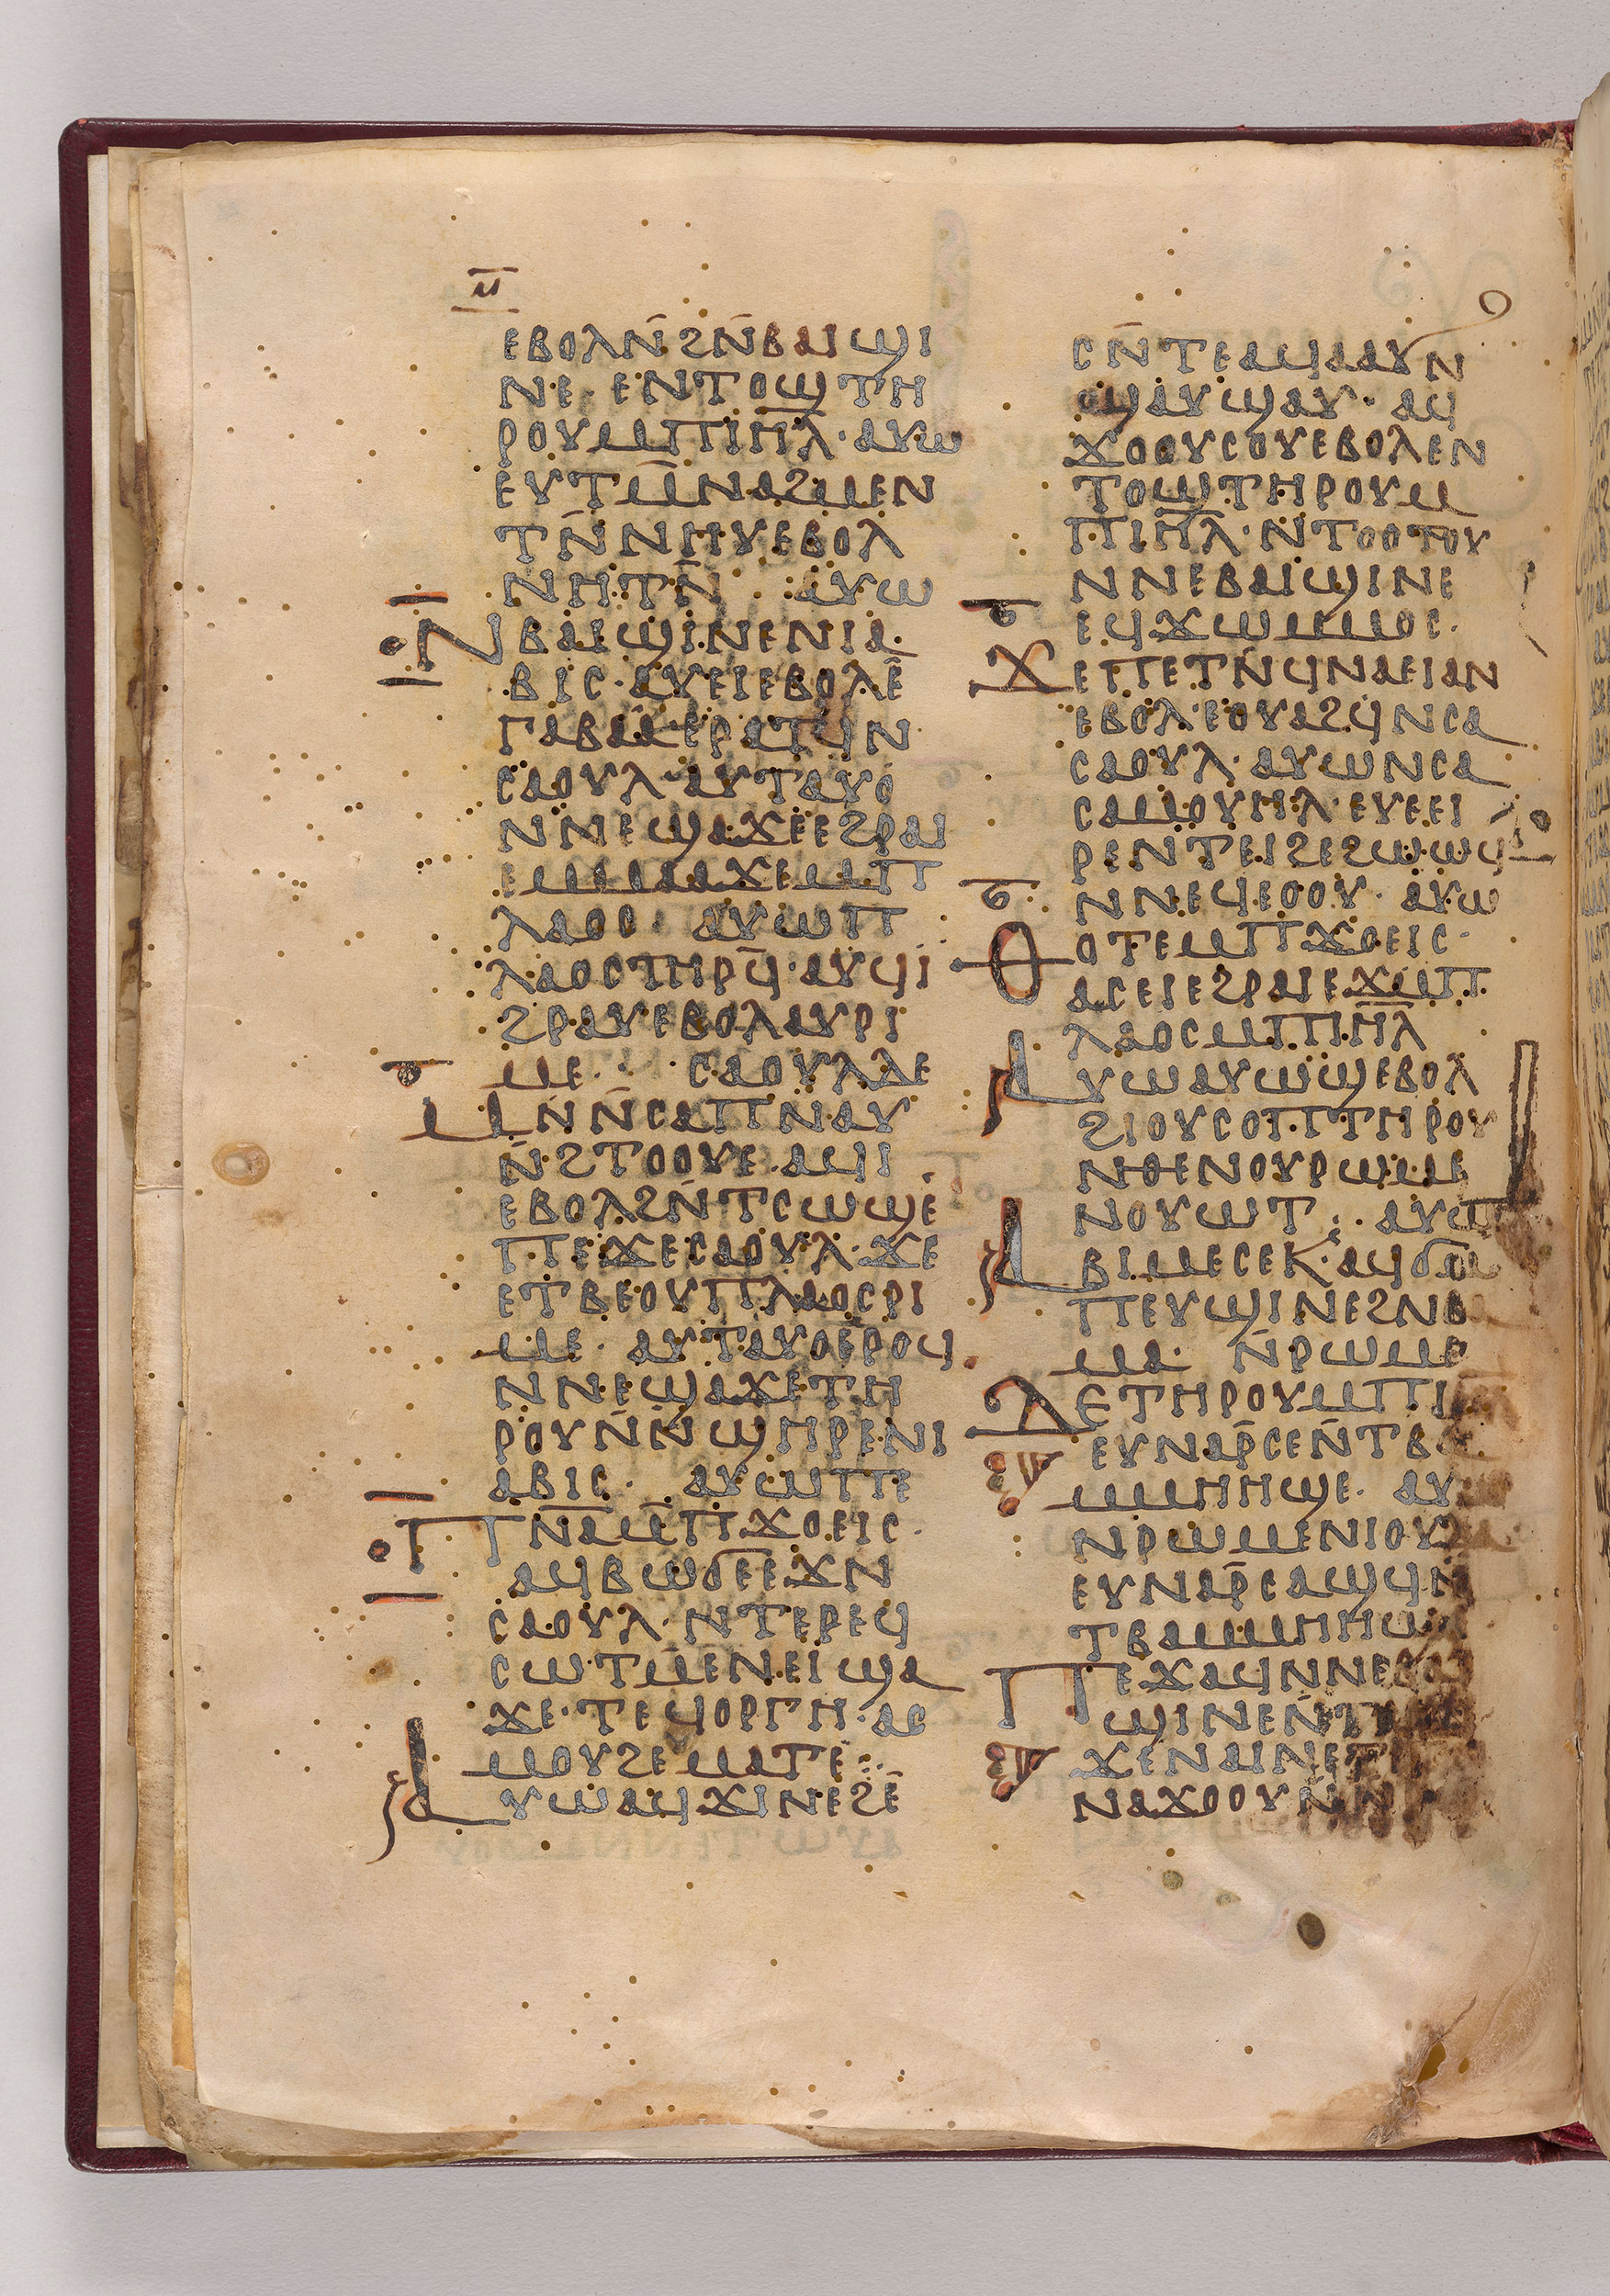 ⲙ̅
ⲉⲃⲟⲗⲛ̄ϩⲛ̄ⲃⲁⲓϣⲓ
ⲛⲉ· ⲉⲛⲧⲟϣⲧⲏ
ⲣⲟⲩⲙⲡⲓⲏ̅ⲗ̅· ⲁⲩⲱ
ⲉⲩⲧⲙ̄ⲛⲁϩⲙⲉⲛ
ⲧⲛ̄ⲛⲏⲩⲉⲃⲟⲗ
ⲛⲏⲧⲛ̄ ⲁⲩⲱ
ⲛⲃⲁⲓϣⲓⲛⲉⲛⲓⲁ
ⲃⲓⲥ· ⲁⲩⲉⲓⲉⲃⲟⲗⲉ̄
ⲅⲁⲃⲁⲁⲉⲣⲁⲧϥⲛ
ⲥⲁⲟⲩⲗ· ⲁⲩⲧⲁⲩⲟ
ⲛⲛⲉϣⲁϫⲉⲉϩⲣⲁⲓ
ⲉⲙⲙⲁⲁϫⲉⲙⲡ
ⲗⲁⲟⲥ· ⲁⲩⲱⲡ
ⲗⲁⲟⲥⲧⲏⲣϥ̄· ⲁⲩϥⲓ
ϩⲣⲁⲩⲉⲃⲟⲗⲁⲩⲣⲓ
ⲙⲉ· ⲥⲁⲟⲩⲗⲇⲉ
ⲙⲛ̄ⲛ̄ⲥⲁⲡⲛⲁⲩ
ⲛ̄ϩⲧⲟⲟⲩⲉ· ⲁϥⲓ
ⲉⲃⲟⲗϩⲛ̄ⲧⲥⲱϣⲉ̄
ⲡⲉϫⲉⲥⲁⲟⲩⲗ· ϫⲉ
ⲉⲧⲃⲉⲟⲩⲡⲗⲁⲟⲥⲣⲓ
ⲙⲉ· ⲁⲩⲧⲁⲩⲟⲉⲣⲟϥ
ⲛⲛⲉϣⲁϫⲉⲧⲏ
ⲣⲟⲩⲛ̄ⲛ̄ϣⲏⲣⲉⲛⲓ
ⲁⲃⲓⲥ· ⲁⲩⲱⲡⲉ
ⲡⲛ̅ⲁ̅ⲙ̄ⲡϫⲟⲉⲓⲥ·
ⲁϥⲃⲱϭⲉⲉϫⲛ
ⲥⲁⲟⲩⲗ· ⲛⲧⲉⲣⲉϥ
ⲥⲱⲧⲙ̄ⲉⲛⲉⲓϣⲁ
ϫⲉ· ⲧⲉϥⲟⲣⲅⲏ· ⲁⲥ
ⲙⲟⲩϩⲉⲙⲁⲧⲉ
ⲁⲩⲱⲁϥϫⲓⲛⲉϩⲉ̄
ⲥⲛ̄ⲧⲉⲁϥⲁⲁⲩⲛ
ϣⲁⲩϣⲁⲩ· ⲁϥ
ϫⲟⲟⲩⲥⲟⲩⲉⲃⲟⲗⲉⲛ
ⲧⲟϣⲧⲏⲣⲟⲩⲙ
ⲡⲓⲏ̅ⲗ̅· ⲛⲧⲟⲟⲧⲟⲩ
ⲛⲛⲉⲃⲁⲓϣⲓⲛⲉ
ⲉϥϫⲱⲙⲙⲟⲥ·
ϫⲉⲡⲉⲧⲛ̄ϥⲛⲁⲉⲓⲁⲛ
ⲉⲃⲟⲗ· ⲉⲟⲩⲁϩϥⲛⲥⲁ
ⲥⲁⲟⲩⲗ· ⲁⲩⲱⲛⲥⲁ
ⲥⲁⲙⲟⲩⲏⲗ· ⲉⲩⲉⲉⲓ
ⲣⲉⲛⲧⲉⲓϩⲉϩⲱⲱϥ
ⲛⲛⲉϥⲉⲟⲟⲩ· ⲁⲩⲱ
ⲑⲟⲧⲉⲙⲡϫⲟⲉⲓⲥ·
ⲁⲥⲉⲓⲉϩⲣⲁⲓⲉϫⲙⲡ
ⲗⲁⲟⲥⲙⲡⲓⲏ̅ⲗ̅
ⲁⲩⲱⲁⲩⲱϣⲉⲃⲟⲗ
ϩⲓⲟⲩⲥⲟⲡⲧⲏⲣⲟⲩ
ⲛⲑⲉⲛⲟⲩⲣⲱⲙⲉ
ⲛⲟⲩⲱⲧ· ⲁⲩⲱ
ⲁⲃⲓⲙⲉⲥⲉⲕ· ⲁϥϭⲙ
ⲡⲉⲩϣⲓⲛⲉϩⲛⲃ
ⲙⲁ· ⲛ̄ⲣⲱⲙⲉ
ⲇⲉⲧⲏⲣⲟⲩⲙⲡⲓ
ⲉⲩⲛⲁⲣ̄ⲥⲉⲛ̄ⲧⲃⲁ
ⲙⲙⲏⲏϣⲉ· ⲁⲩ
ⲛⲣⲱⲙⲉⲛⲓⲟⲩ
ⲉⲩⲛⲁⲣ̄ⲥⲁϣϥⲛ̄
ⲧⲃⲁⲙⲙⲏⲏϣ
ⲡⲉϫⲁϥⲛⲛⲉ
ϣⲓⲛⲉⲛ̄ⲧ
ϫⲉⲛⲁⲓⲛⲉⲧ
ⲛⲁϫⲟⲟⲩⲛ̄ⲛ